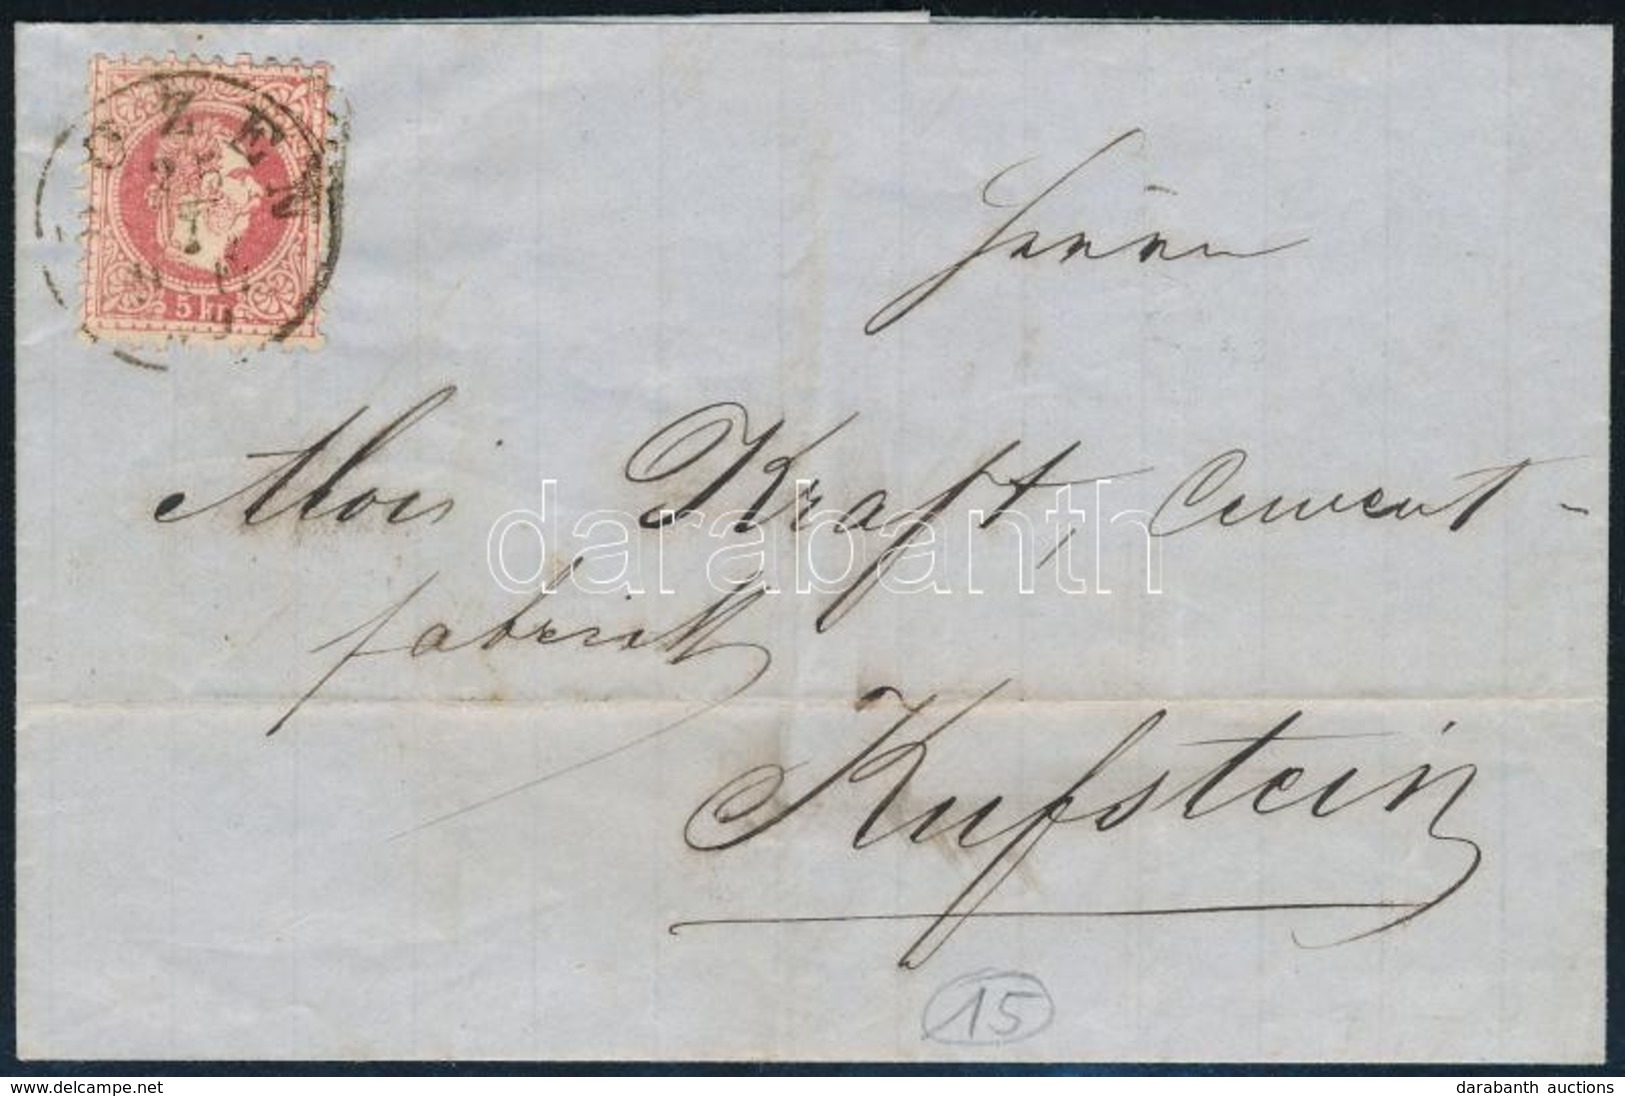 OZEN
5 Kr
Herrn
Alois Kraft, Cement-
fabrick
Kufstein
15
darabanth
www.delcampe.net
darabanth auctions